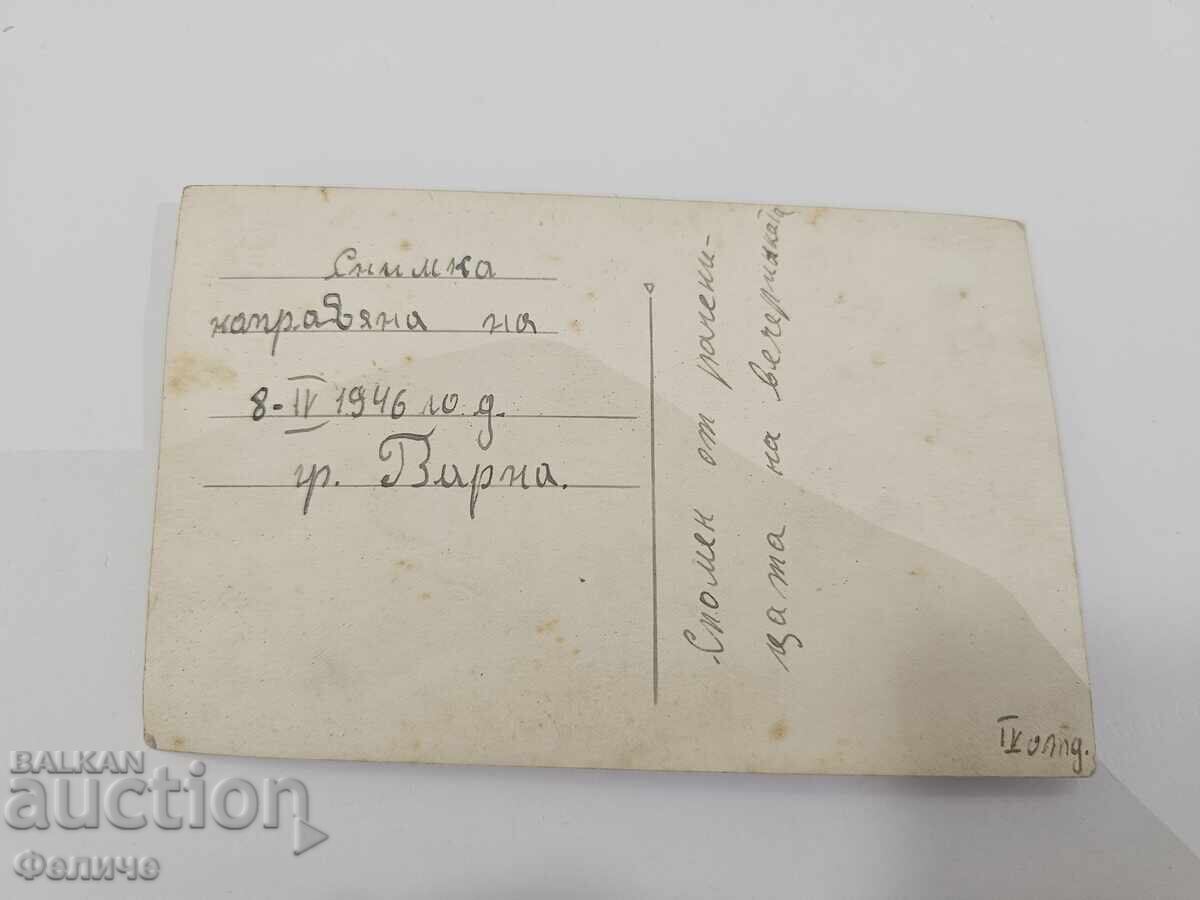 Снимка
направяна на
8-IV 1946 год.
гр. Варна.
Спомен от ранени-
цата на вечеринката
IV отд.
BALKAN
auction
Феличе